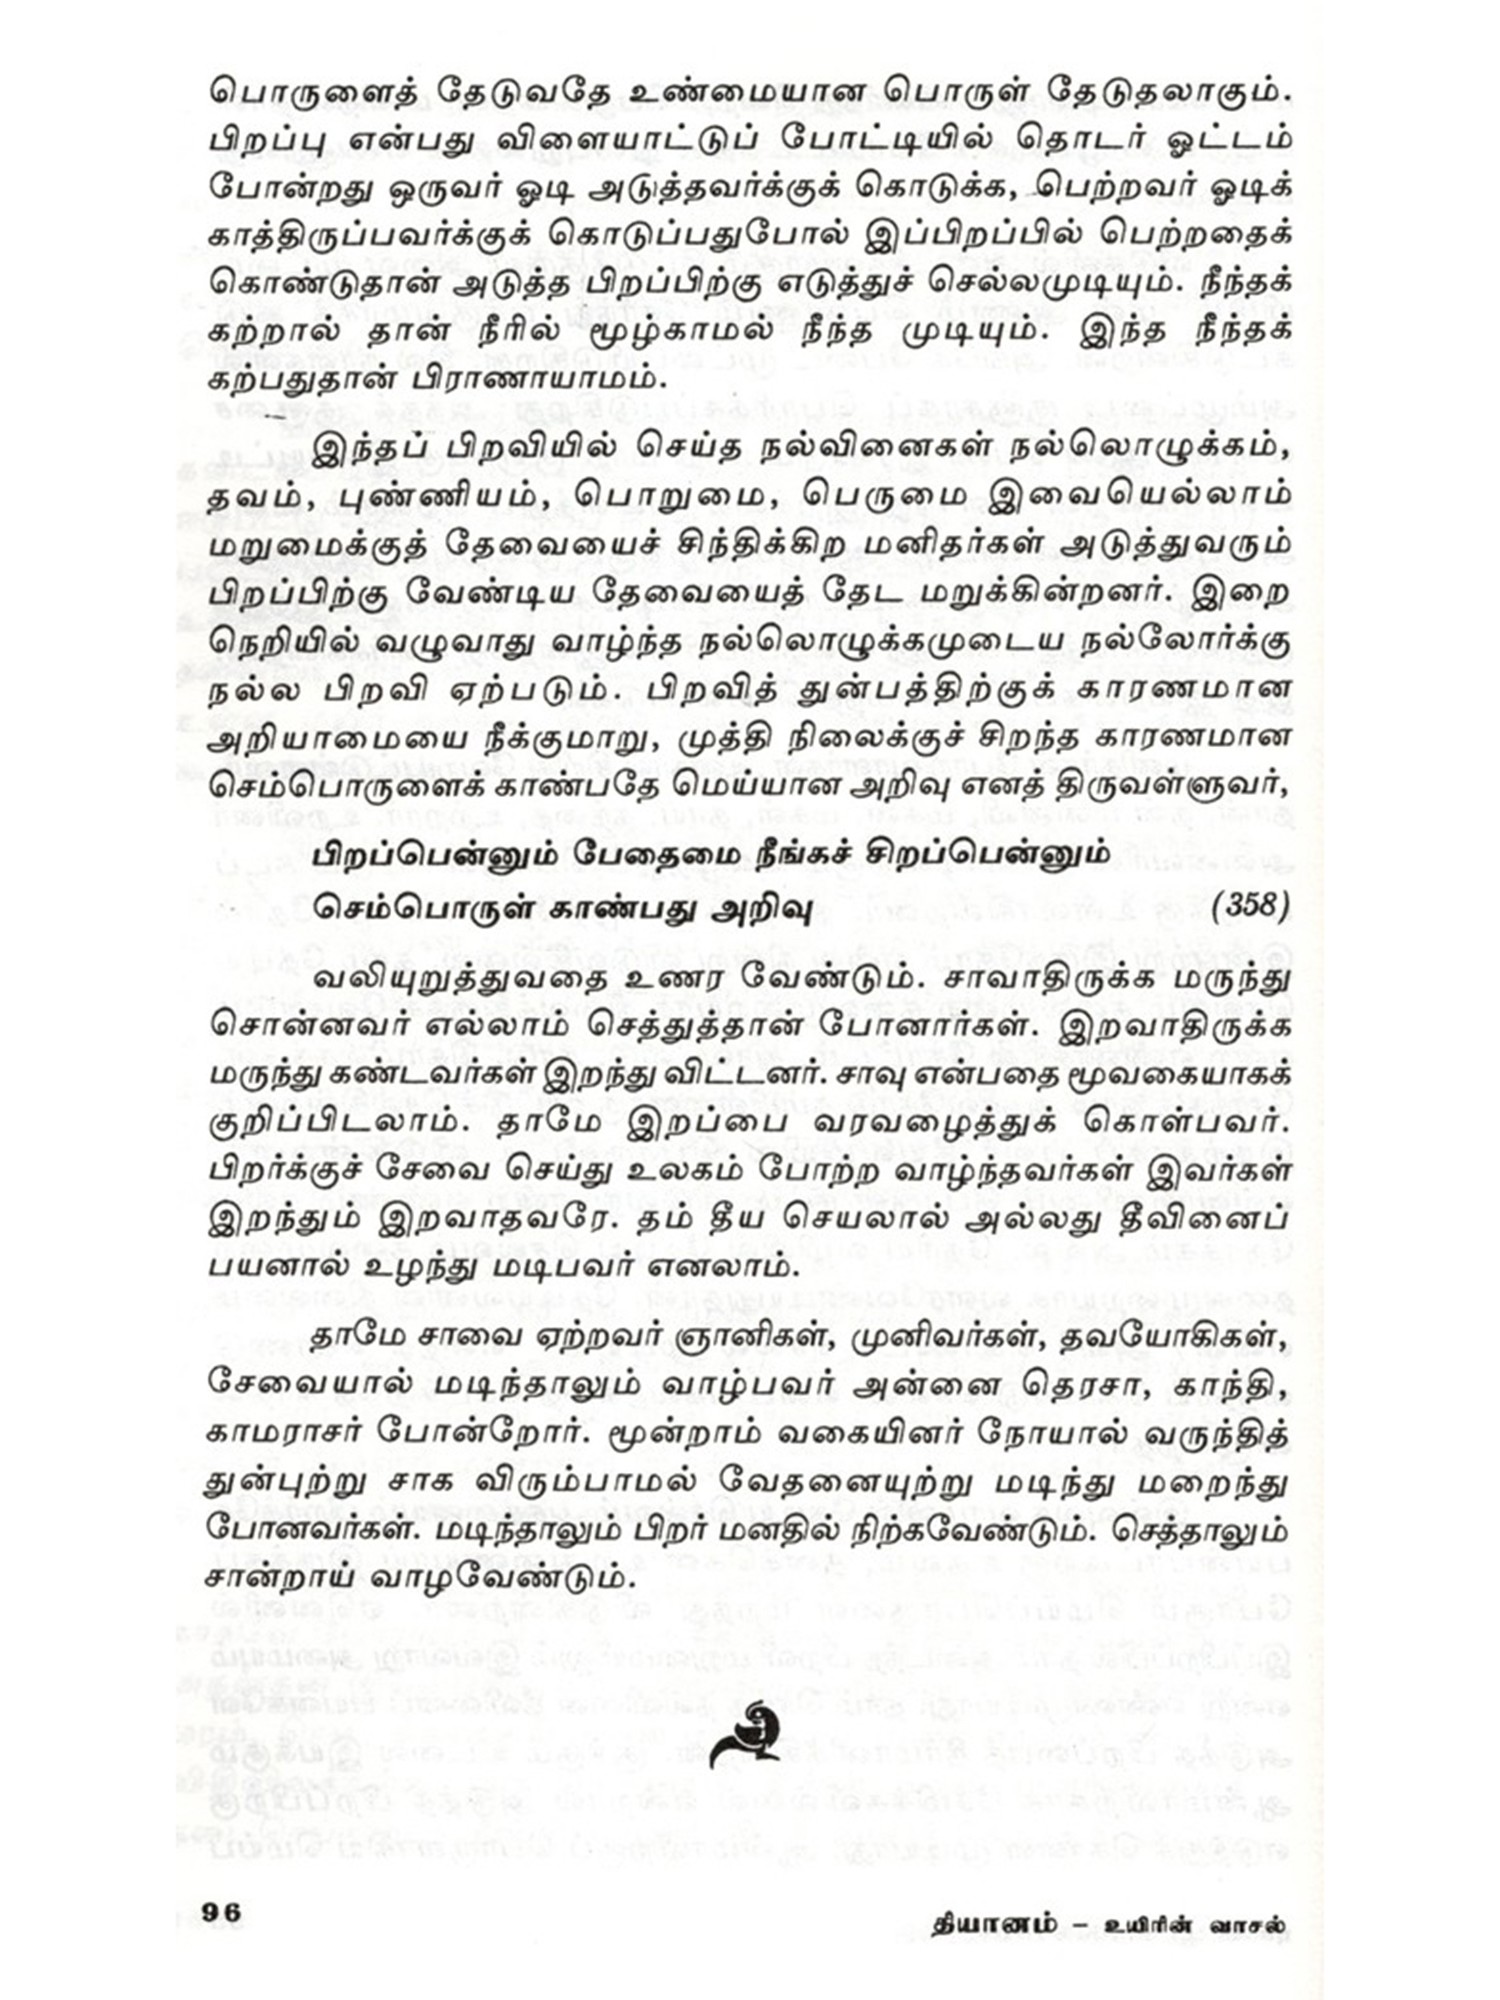 பொருளைத் தேடுவதே உண்மையான பொருள் தேடுதலாகும்.
பிறப்பு என்பது விளையாட்டுப் போட்டியில் தொடர் ஓட்டம்
போன்றது ஒருவர் ஓடி அடுத்தவர்க்குக் கொடுக்க, பெற்றவர் ஓடிக்
காத்திருப்பவர்க்குக் கொடுப்பதுபோல் இப்பிறப்பில் பெற்றதைக்
கொண்டுதான் அடுத்த பிறப்பிற்கு எடுத்துச் செல்லமுடியும். நீந்தக்
கற்றால் தான் நீரில் மூழ்காமல் நீந்த முடியும். இந்த நீந்தக்
கற்பதுதான் பிராணாயாமம்.
இந்தப் பிறவியில் செய்த நல்வினைகள் நல்லொழுக்கம்,
தவம், புண்ணியம், பொறுமை, பெருமை இவையெல்லாம்
மறுமைக்குத் தேவையைச் சிந்திக்கிற மனிதர்கள் அடுத்துவரும்
பிறப்பிற்கு வேண்டிய தேவையைத் தேட மறுக்கின்றனர். இறை
நெறியில் வழுவாது வாழ்ந்த நல்லொழுக்கமுடைய நல்லோர்க்கு
நல்ல பிறவி ஏற்படும். பிறவித் துன்பத்திற்குக் காரணமான
அறியாமையை நீக்குமாறு, முத்தி நிலைக்குச் சிறந்த காரணமான
செம்பொருளைக் காண்பதே மெய்யான அறிவு எனத் திருவள்ளுவர்,
பிறப்பென்னும் பேதைமை நீங்கச் சிறப்பென்னும்
செம்பொருள் காண்பது அறிவு (358)
வலியுறுத்துவதை உணர வேண்டும். சாவாதிருக்க மருந்து
சொன்னவர் எல்லாம் செத்துத்தான் போனார்கள். இறவாதிருக்க
மருந்து கண்டவர்கள் இறந்து விட்டனர். சாவு என்பதை மூவகையாகக்
குறிப்பிடலாம். தாமே இறப்பை வரவழைத்துக் கொள்பவர்.
பிறர்க்குச் சேவை செய்து உலகம் போற்ற வாழ்ந்தவர்கள் இவர்கள்
இறந்தும் இறவாதவரே. தம் தீய செயலால் அல்லது தீவினைப்
பயனால் உழந்து மடிபவர் எனலாம்.
தாமே சாவை ஏற்றவர் ஞானிகள், முனிவர்கள், தவயோகிகள்,
சேவையால் மடிந்தாலும் வாழ்பவர் அன்னை தெரசா, காந்தி,
காமராசர் போன்றோர். மூன்றாம் வகையினர் நோயால் வருந்தித்
துன்புற்று சாக விரும்பாமல் வேதனையுற்று மடிந்து மறைந்து
போனவர்கள். மடிந்தாலும் பிறர் மனதில் நிற்கவேண்டும். செத்தாலும்
சான்றாய் வாழவேண்டும்.
96 தியானம் – உயிரின் வாசல்